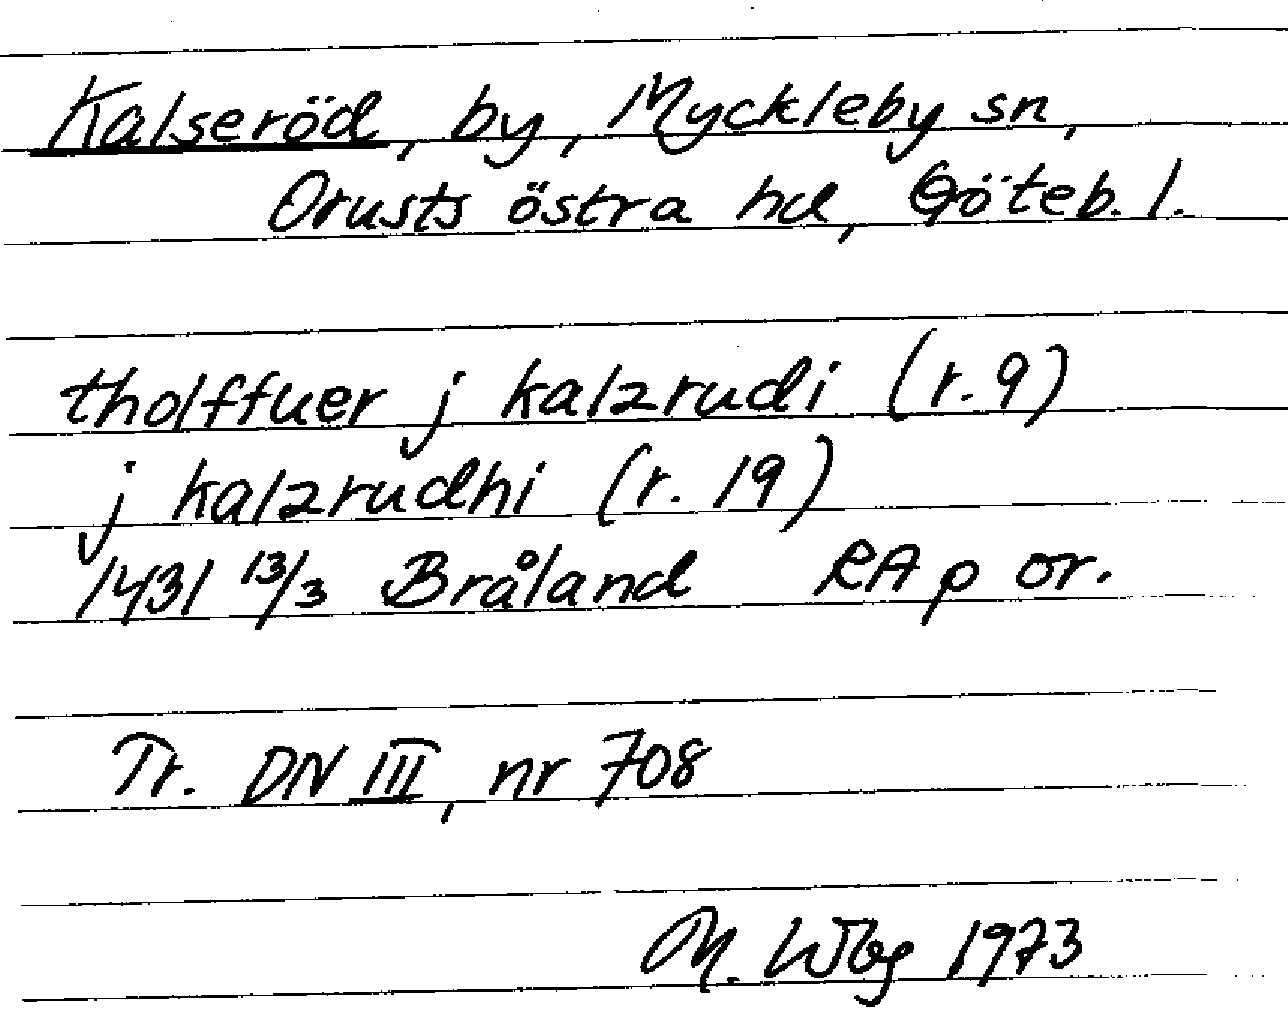 Kalseröd, by, Myckleby sn,
Orusts östra hd, Göteb. l.
tholffuer j kalzrudi (r. 9)
j kalzrudhi (r. 19)
1431 13/3 Bråland RAp or.
Tr. DN III, nr 708
M. Wbg 1973